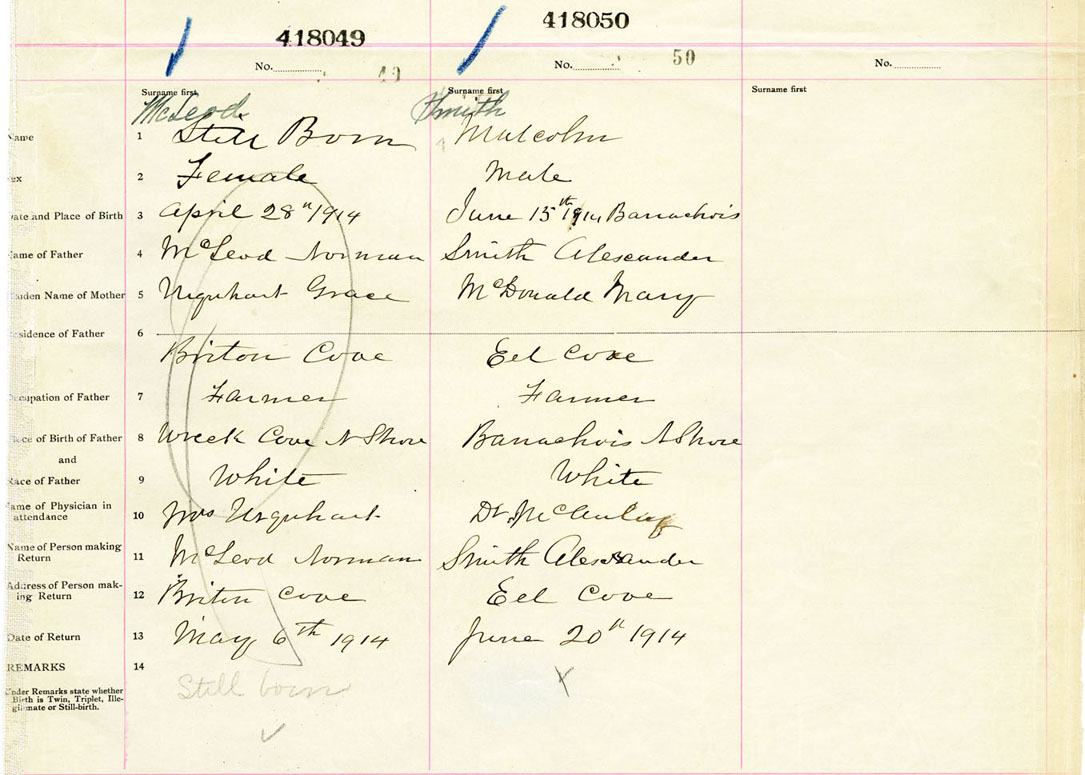 418049
418050
No.
49
No.
50
No.
Surname first
Surname first
Surname first
McLeod
Smith
Name 1 Still Born Malcolm
Sex 2 Female Male
Date and Place of Birth 3 April 28th 1914 June 15th 1914 Barrachois
Name of Father 4 McLeod Norman Smith Alexander
Maiden Name of Mother 5 Urquhart Grace McDonald Mary
Residence of Father 6
Briton Cove Eel Cove
Occupation of Father 7 Farmer Farmer
Place of Birth of Father 8 Wreck Cove N Shore Barrachois N Shore
and
Race of Father 9 White White
Name of Physician in
attendance 10 Mrs Urquhart Dr.
Name of Person making
Return 11 McLeod Norman Smith Alexander
Address of Person mak-
ing Return 12 Briton Cove Eel Cove
Date of Return 13 May 6th 1914 June 20th 1914
REMARKS 14
Under Remarks state whether
Birth is Twin, Triplet, Ille-
gitimate or Still-birth.
Still born